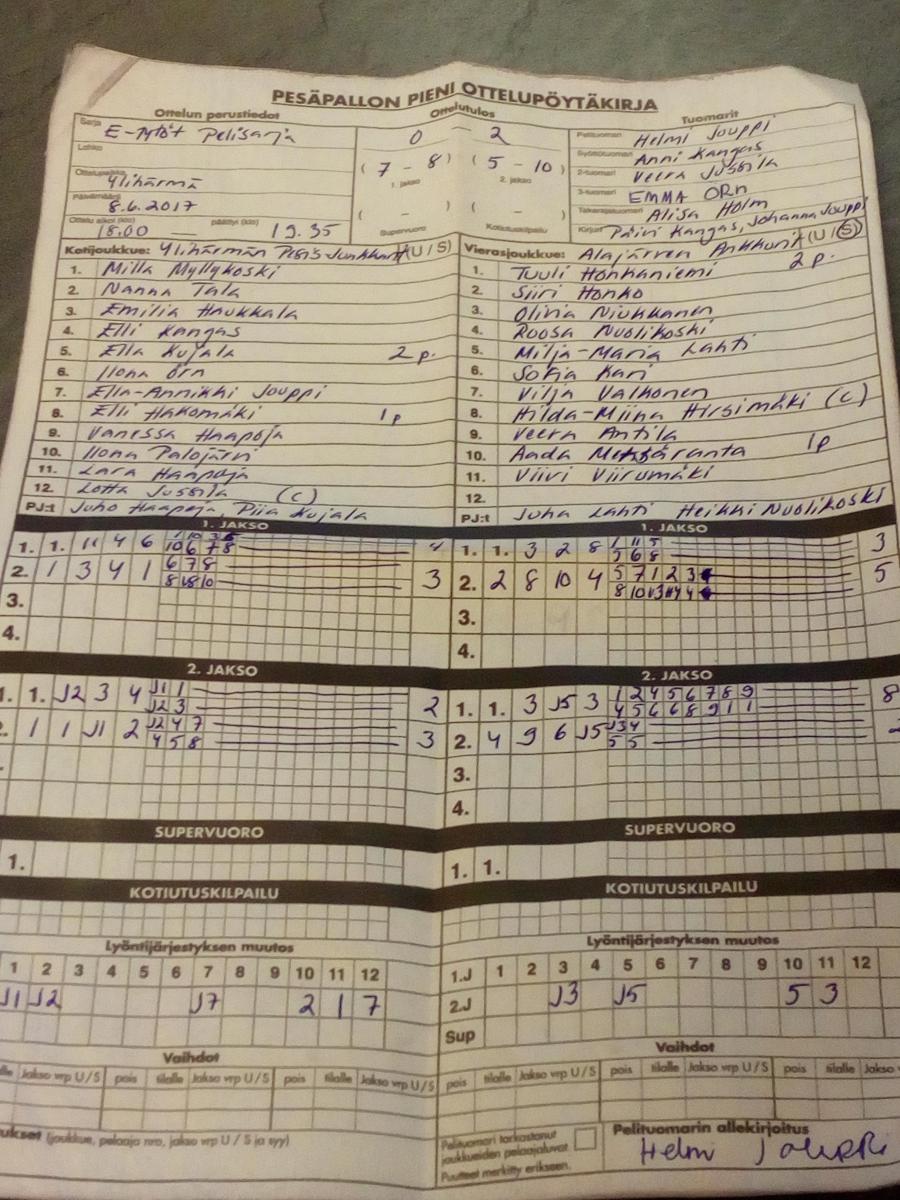 PESÄPALLON PIENI OTTELUPÖYTÄKIRJA
Ottelun perustiedot Ottelutulos Tuomarit
Sarja E-tytöt Pelisarja
Lohko
Ottelupaikka Ylihärmä
Päivämäärä 8.6.2017
Ottelu alkoi (klo) 18.00 — päättyi (klo) 19.35
0 – 2
(7 – 8) (5 – 10)
1. jakso 2. jakso
( – ) ( – )
Supervuoro Kotiutuskilpailu
Pelituomari Helmi Jouppi
Syöttötuomari Anni Kangas
2-tuomari Veera Jussila
3-tuomari EMMA ORn
Takarajatuomari Alisa Holm
Kirjuri Päivi Kangas, Johanna Jouppi
Kotijoukkue: Ylihärmän Pesis-Junkkarit (U / S)
1. Milla Myllykoski
2. Nanna Tala
3. Emilia Haukkala
4. Elli Kangas
5. Ella Kujala 2 p.
6. Ilona Örn
7. Ella-Annikki Jouppi
8. Elli Hakomäki 1p
9. Vanessa Haapoja
10. Ilona Palojärvi
11. Lara Haapoja
12. Lotta Jussila (c)
PJ:t Juho Haapoja, Piia Kujala
Vierasjoukkue: Alajärven Ankkurit (U / S)
1. Tuuli Honkaniemi 2 p.
2. Siiri Honko
3. Olivia Niukkanen
4. Roosa Nuolikoski
5. Milja-Maria Lahti
6. Sofia Kari
7. Vilja Valkonen
8. Hilda-Miina Hirsimäki (c)
9. Veera Antila
10. Aada Metsäranta 1p
11. Viivi Viirumäki
12.
PJ:t Juha Lahti Heikki Nuolikoski
1. JAKSO
1. 1. 11 4 6
10 6 7 8
2. 1 3 4 1 6 7 8 3
3.
4.
1. JAKSO
1. 1. 3 2 8 1 11 5 3
5 6 8
2. 2 8 10 4 5 7 1 2 3 5
3.
4.
2. JAKSO
1. 1. J2 3 4 J1 1 2
J2 3
1 1 J1 2 J2 4 7 3
4 5 8
2. JAKSO
1. 1. 3 J5 3 1 2 4 5 6 7 8 9 8
4 5 6 6 8 9 1 1
2. 4 9 6 J5 J3 4
5 5
3.
4.
SUPERVUORO
1.
SUPERVUORO
1. 1.
KOTIUTUSKILPAILU
KOTIUTUSKILPAILU
Lyöntijärjestyksen muutos
1 2 3 4 5 6 7 8 9 10 11 12
J1 J2 J7 2 1 7
Lyöntijärjestyksen muutos
1.J 1 2 3 4 5 6 7 8 9 10 11 12
2.J J3 J5 5 3
Sup
Vaihdot
Jakso vrp U / S pois tilalle Jakso vrp U / S pois tilalle Jakso vrp U / S
Vaihdot
pois tilalle Jakso vrp U / S pois tilalle Jakso vrp U / S pois tilalle Jakso
(joukkue, pelaaja nro, jakso vrp U / S ja syy)
Pelituomari tarkastanut
joukkueiden pelaajaluvat.
Puutteet merkitty erikseen.
Pelituomarin allekirjoitus
Helmi Jouppi